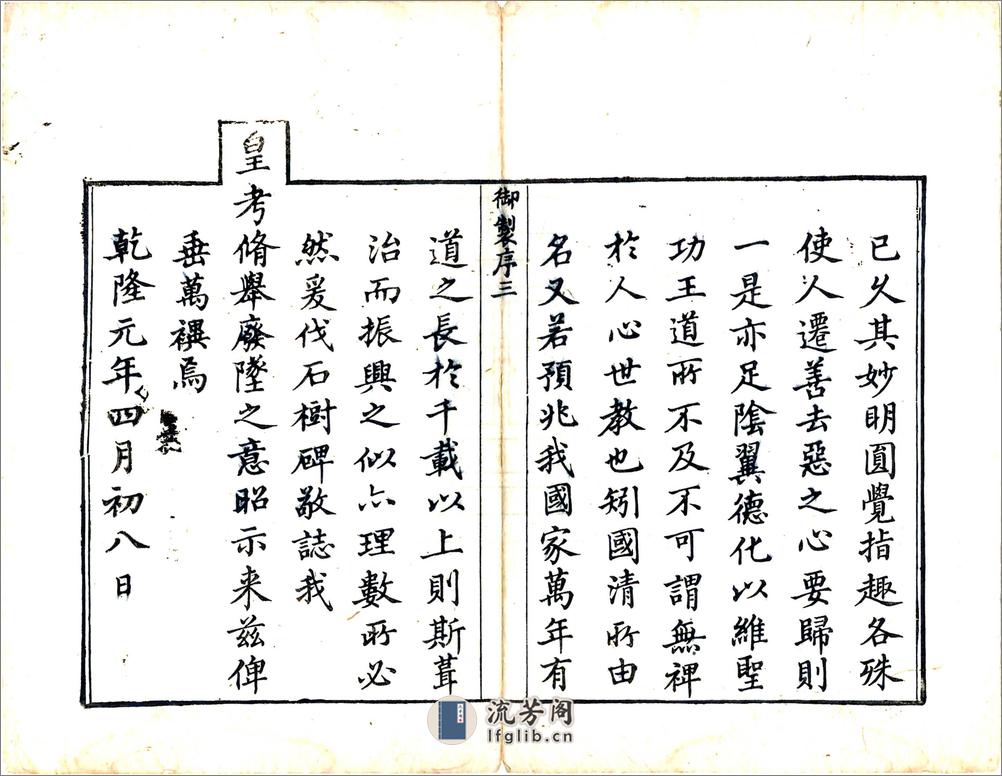 已久其妙明圓覺指趣各殊
使人遷善去惡之心要歸則
一是亦足陰翼德化以維聖
功王道所不及不可謂無裨
於人心世教也矧國清所由
名又若預兆我國家萬年有
御製序三
道之長於千載以上則斯葺
治而振興之似亦理數所必
然爰伐石樹碑敬誌我
皇考脩舉廢墜之意昭示来兹俾
垂萬禩焉
乾隆元年四月初八日
流芳阁
lfglib.cn